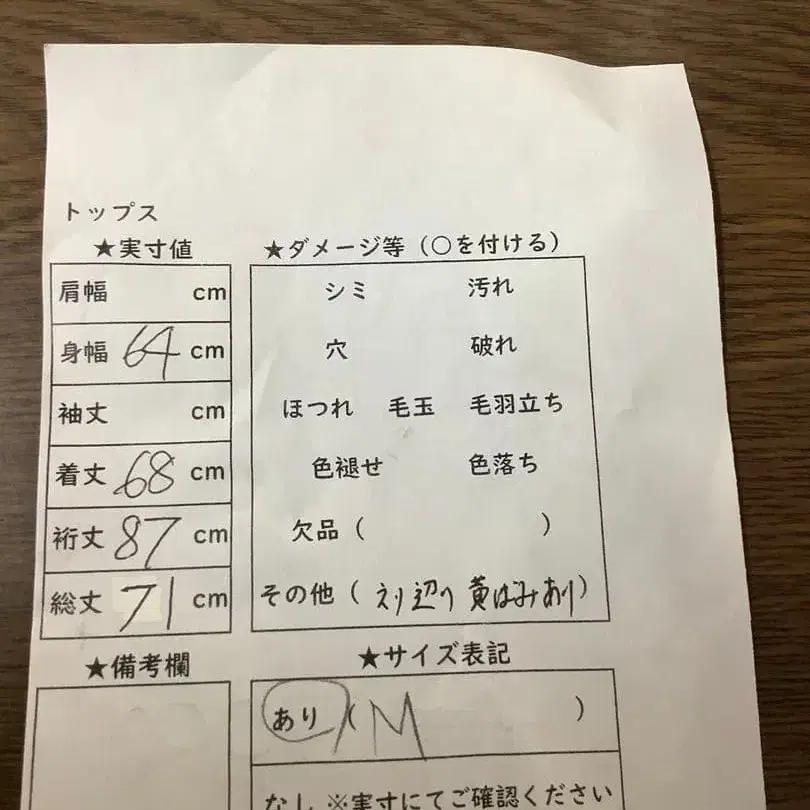 トップス
★実寸値
肩幅 cm
身幅 64 cm
袖丈 cm
着丈 68 cm
裄丈 87 cm
総丈 71 cm
★備考欄
★ダメージ等（○を付ける）
シミ 汚れ
穴 破れ
ほつれ 毛玉 毛羽立ち
色褪せ 色落ち
欠品（ ）
その他（えり辺り 黄ばみあり）
★サイズ表記
あり（M ）
なし ※実寸にてご確認ください